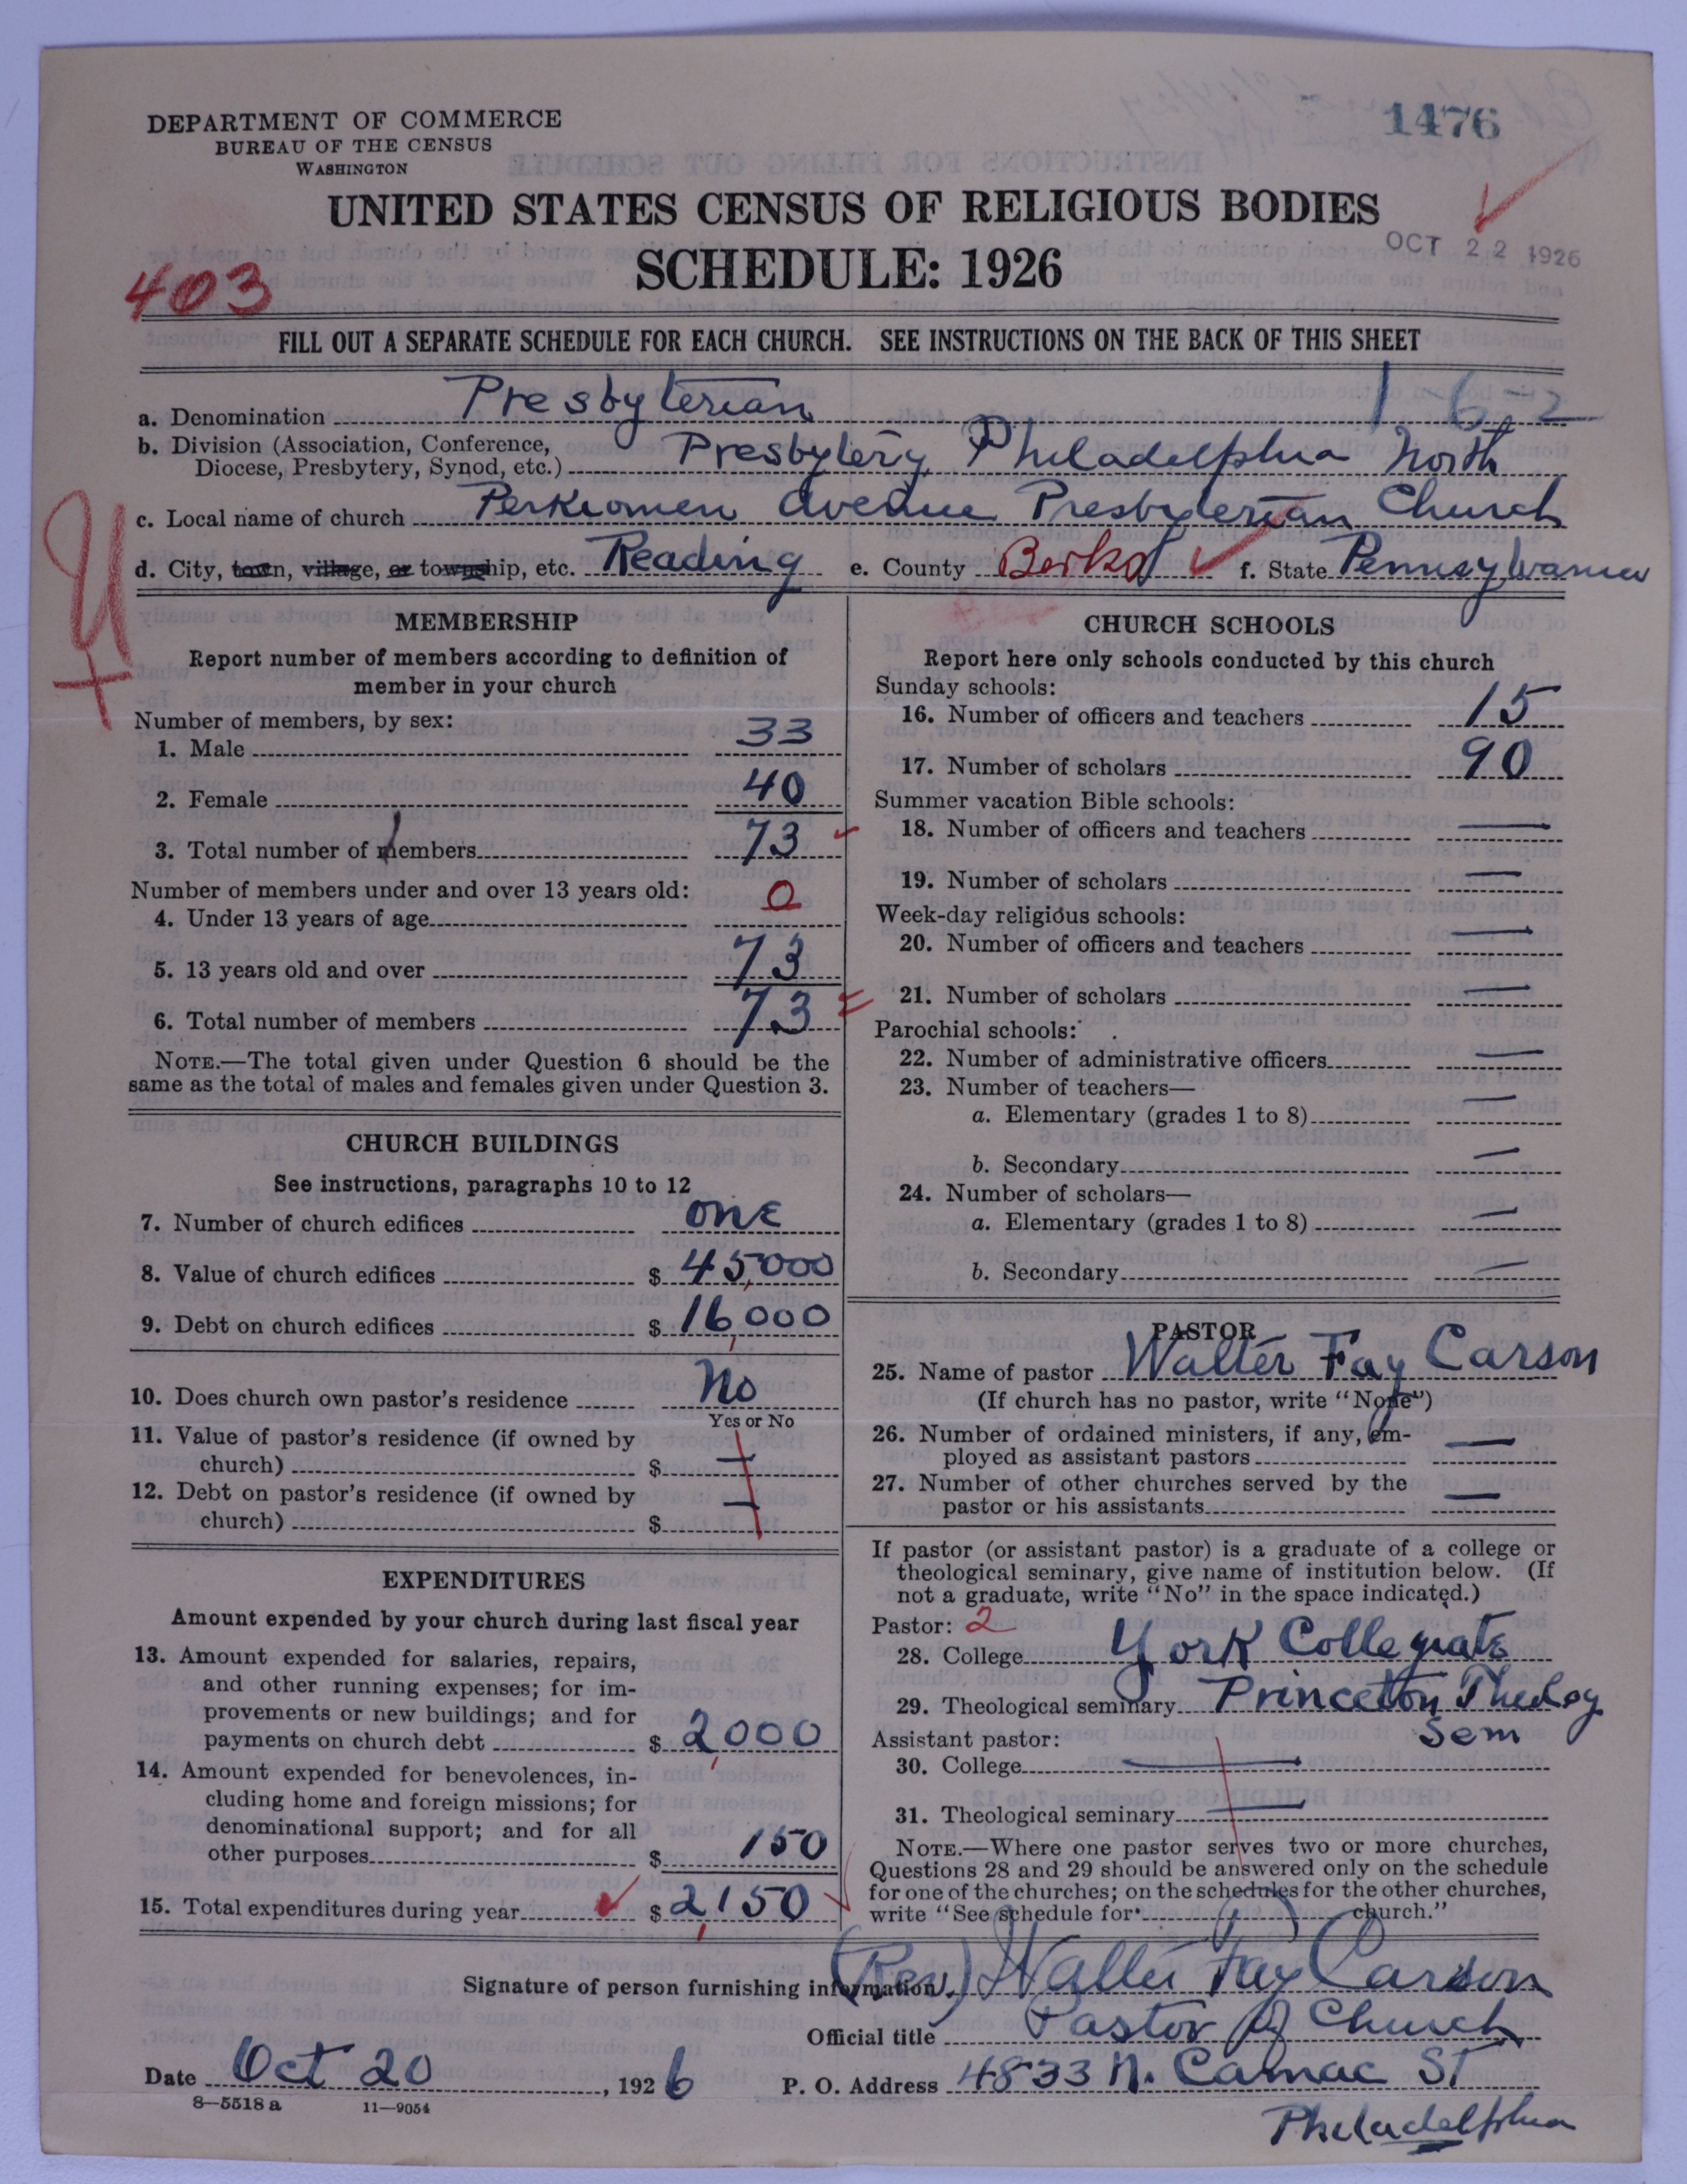 1476
DEPARTMENT OF COMMERCE
BUREAU OF THE CENSUS
WASHINGTON
UNITED STATES CENSUS OF RELIGIOUS BODIES
SCHEDULE: 1926
OCT 22 1926
403
FILL OUT A SEPARATE SCHEDULE FOR EACH CHURCH. SEE INSTRUCTIONS ON THE BACK OF THIS SHEET
a. Denomination Presbyterian 162
b. Division (Association, Conference,
Diocese, Presbytery, Synod, etc.) Presbytery Philadelphia North
c. Local name of church Perkiomen Avenue Presbyterian Church
d. City, town, village, or township, etc. Reading e. County Berks f. State Pennsylvania
MEMBERSHIP
Report number of members according to definition of
member in your church
Number of members, by sex:
1. Male 33
2. Female 40
3. Total number of members 73
Number of members under and over 13 years old:
4. Under 13 years of age 0
5. 13 years old and over 73
6. Total number of members 73
NOTE.—The total given under Question 6 should be the
same as the total of males and females given under Question 3.
CHURCH BUILDINGS
See instructions, paragraphs 10 to 12
7. Number of church edifices one
8. Value of church edifices $ 45,000
9. Debt on church edifices $ 16,000
10. Does church own pastor's residence No
Yes or No
11. Value of pastor's residence (if owned by
church) $ —
12. Debt on pastor's residence (if owned by
church) $ —
EXPENDITURES
Amount expended by your church during last fiscal year
13. Amount expended for salaries, repairs,
and other running expenses; for im-
provements or new buildings; and for
payments on church debt $ 2,000
14. Amount expended for benevolences, in-
cluding home and foreign missions; for
denominational support; and for all
other purposes $ 150
15. Total expenditures during year $ 2,150
CHURCH SCHOOLS
Report here only schools conducted by this church
Sunday schools:
16. Number of officers and teachers 15
17. Number of scholars 90
Summer vacation Bible schools:
18. Number of officers and teachers —
19. Number of scholars —
Week-day religious schools:
20. Number of officers and teachers —
21. Number of scholars —
Parochial schools:
22. Number of administrative officers —
23. Number of teachers—
a. Elementary (grades 1 to 8) —
b. Secondary —
24. Number of scholars—
a. Elementary (grades 1 to 8) —
b. Secondary —
PASTOR
25. Name of pastor Walter Fay Carson
(If church has no pastor, write "None")
26. Number of ordained ministers, if any, em-
ployed as assistant pastors —
27. Number of other churches served by the
pastor or his assistants —
If pastor (or assistant pastor) is a graduate of a college or
theological seminary, give name of institution below. (If
not a graduate, write "No" in the space indicated.)
Pastor: 2
28. College York Collegiate
29. Theological seminary Princeton Theolog
Sem
Assistant pastor:
30. College —
31. Theological seminary —
NOTE.—Where one pastor serves two or more churches,
Questions 28 and 29 should be answered only on the schedule
for one of the churches; on the schedules for the other churches,
write "See schedule for church."
Signature of person furnishing information (Rev) Walter Fay Carson
Official title Pastor of Church
Date Oct 20, 1926 P. O. Address 4833 N. Camac St
Philadelphia
8—5518 a 11—9054